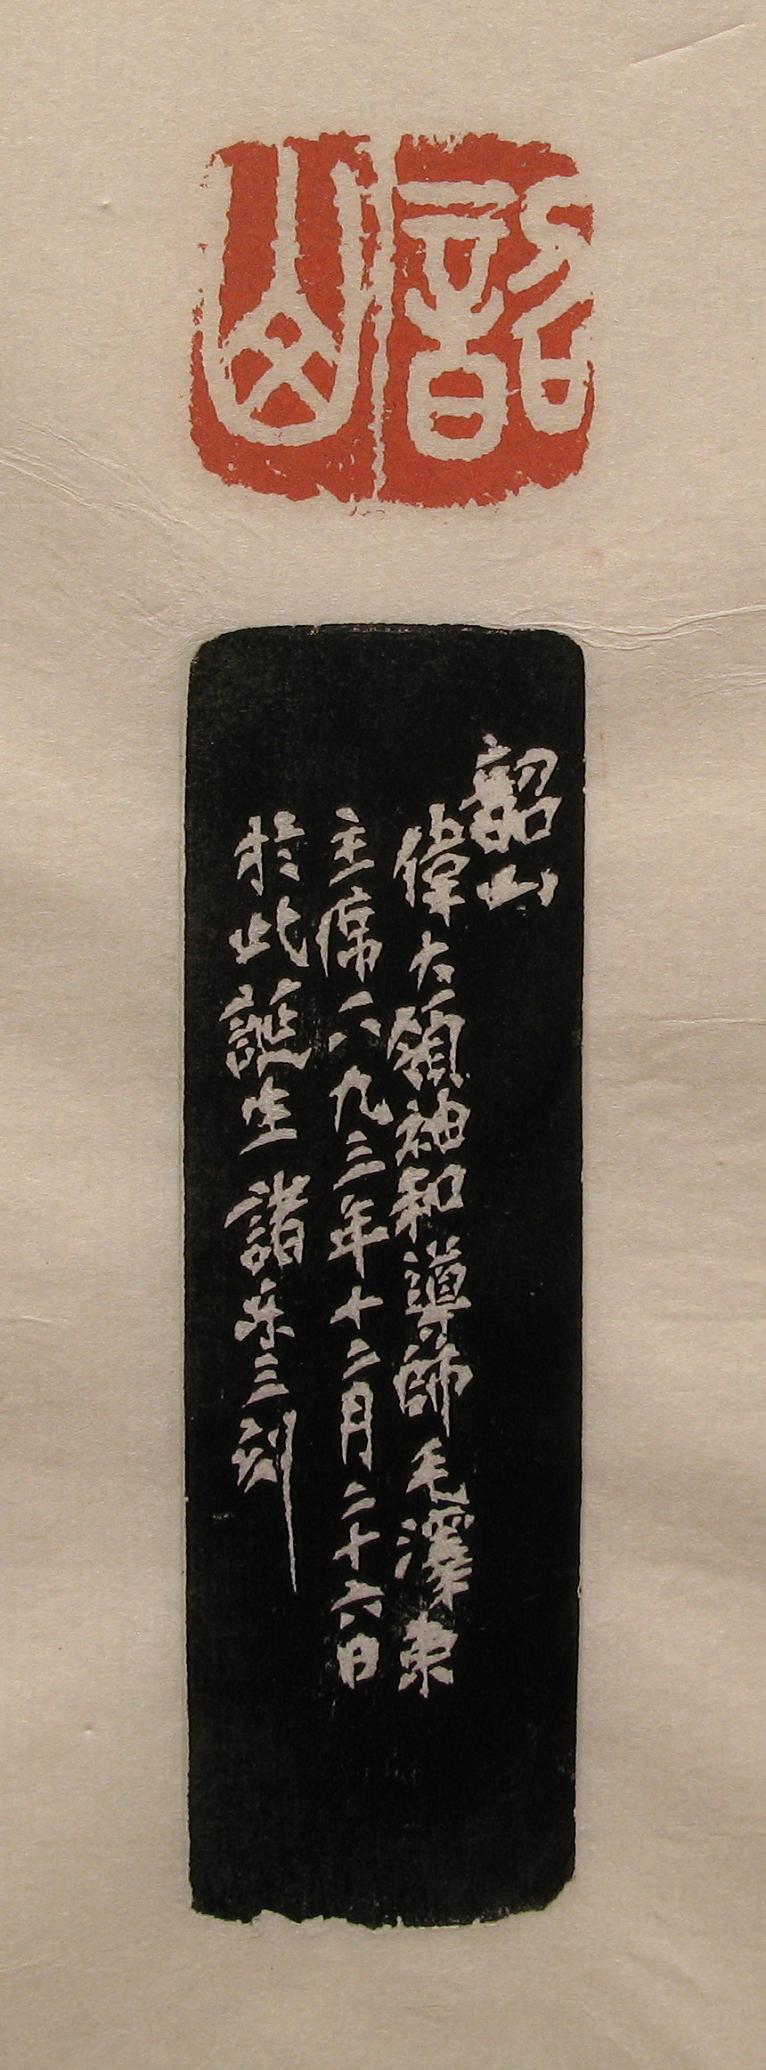 韶山
韶山
偉大領袖和導師毛澤東
主席一八九三年十二月二十六日
於此誕生 諸乐三刻